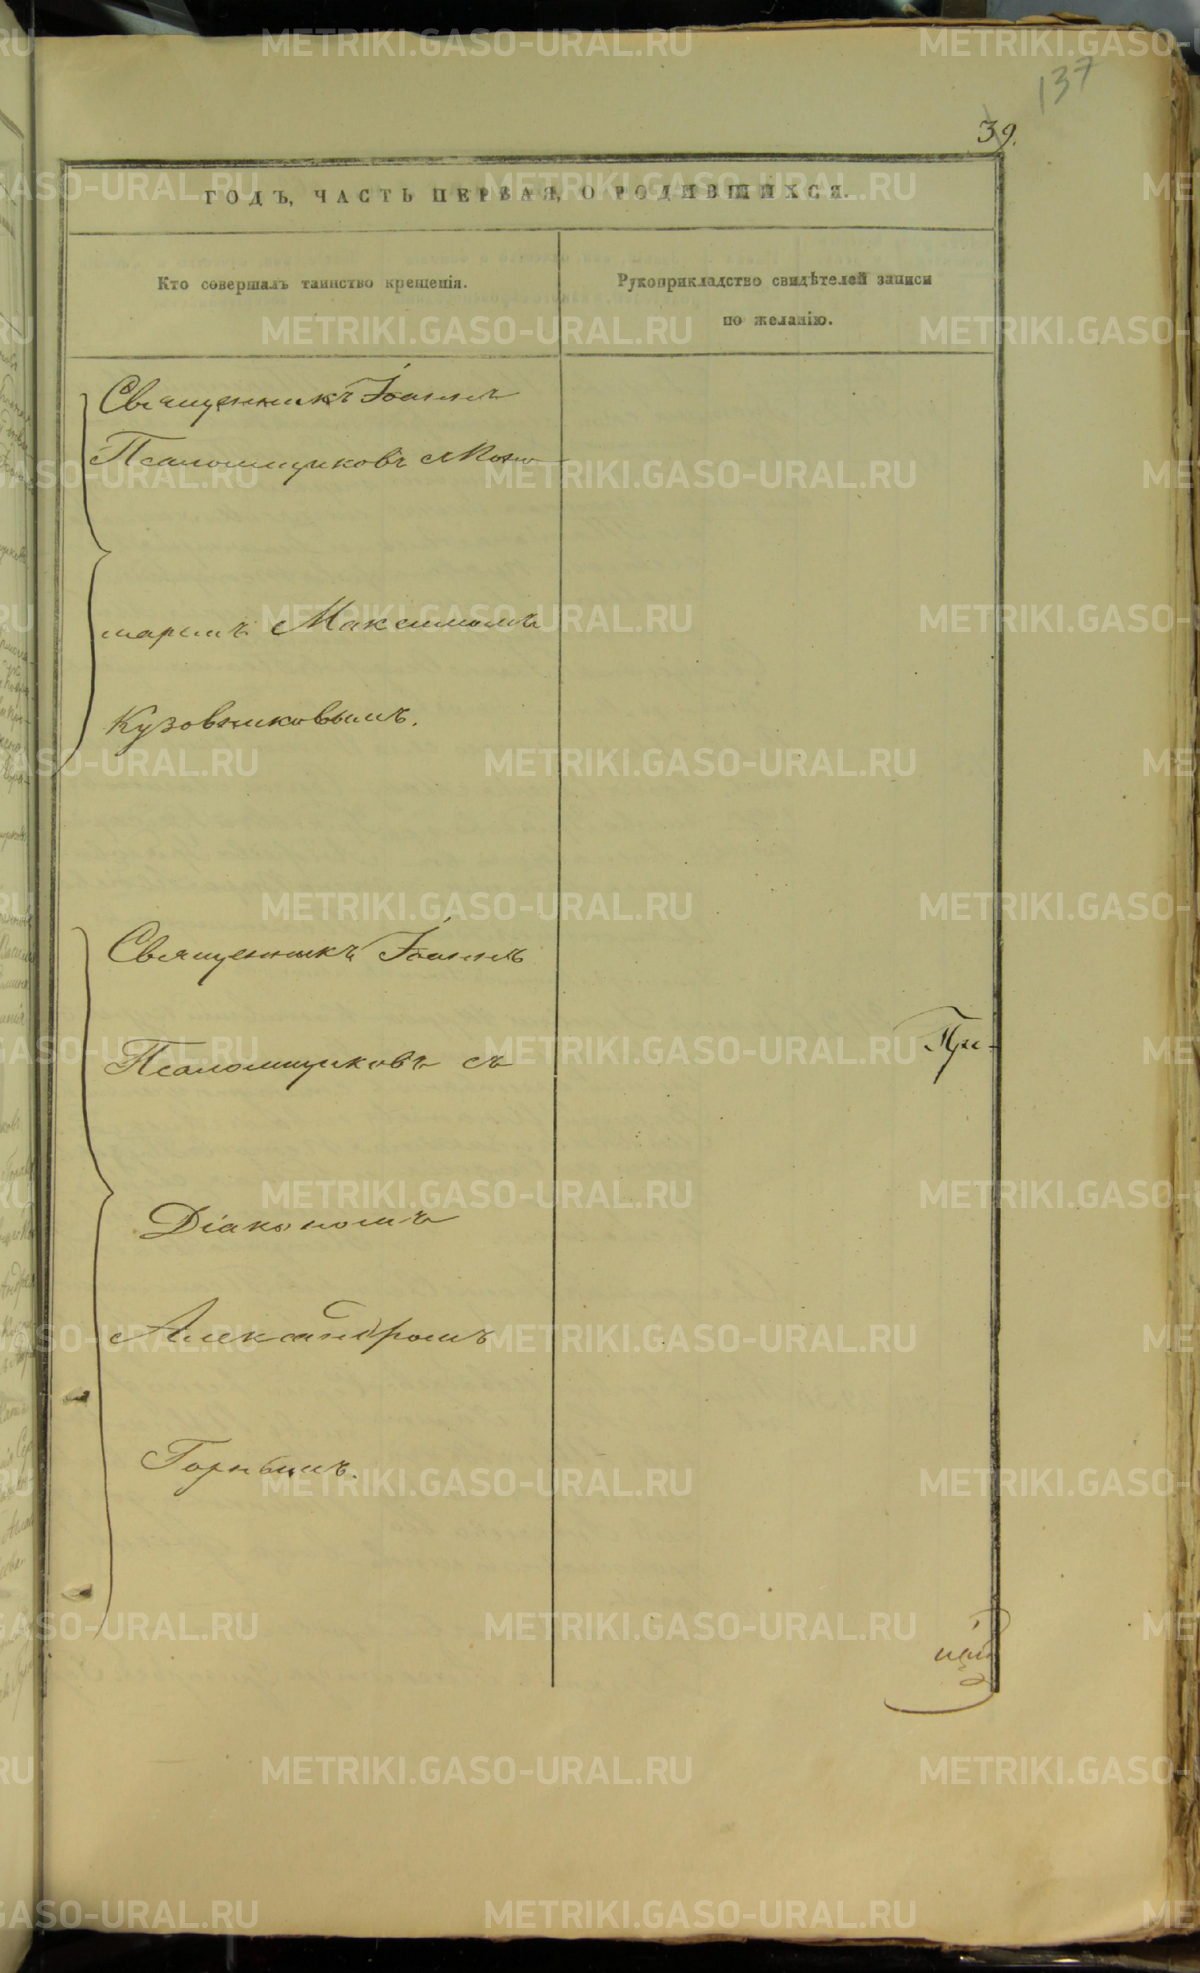 137
39.
ГОДЪ, ЧАСТЬ ПЕРВАЯ, О РОДИВШИХСЯ.
Кто совершалъ таинство крещенія.
Рукоприкладство свидѣтелей записи
по желанію.
Священникъ Іоаннъ
Псаломщиковъ с Поно
маремъ Максимомъ
Кузовниковымъ.
Священникъ Іоаннъ
Псаломщиковъ съ
При-
Діакономъ
Александромъ
Горнымъ.
METRIKI.GASO-URAL.RU